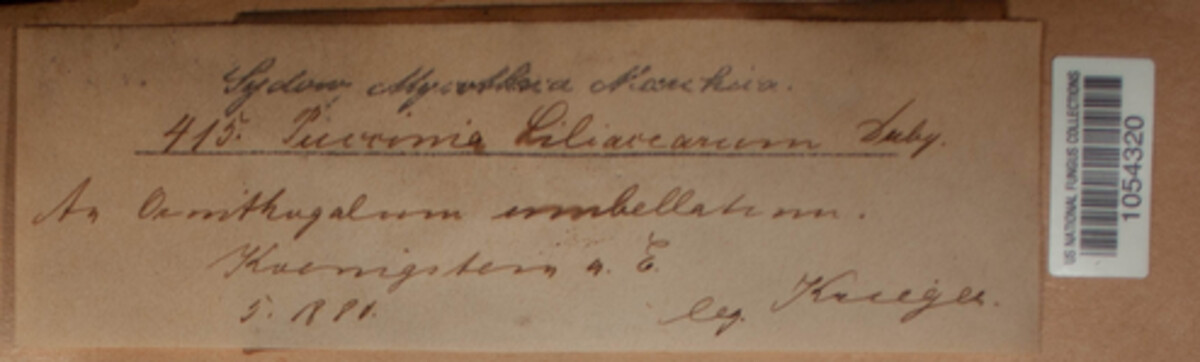 Sydow Mycotheca Marchica.
415. Puccinia Liliacearum Duby.
An Ornithogalum umbellatum.
Koenigstein a. E.
5. 1881.
leg. Krieger.
US NATIONAL FUNGUS COLLECTIONS
1054320